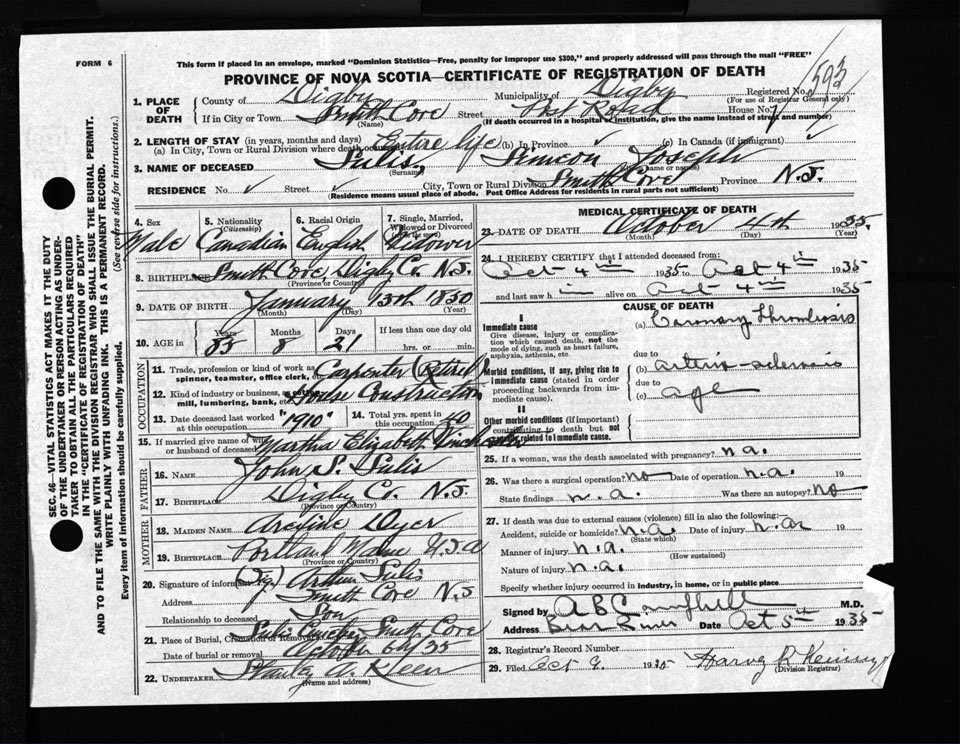 FORM 6
This form if placed in an envelope, marked "Dominion Statistics—Free, penalty for improper use $300," and properly addressed will pass through the mail "FREE"
PROVINCE OF NOVA SCOTIA—CERTIFICATE OF REGISTRATION OF DEATH
593
Registered No.
(For use of Registrar General only)
1. PLACE OF DEATH
County of Digby Municipality of Digby
If in City or Town Smith Cove Street Post Road House No.
(Name) (If death occurred in a hospital or institution, give the name instead of street and number)
2. LENGTH OF STAY (in years, months and days)
(a) In City, Town or Rural Division where death occurred Entire life (b) In Province ✓ (c) In Canada (if immigrant)
3. NAME OF DECEASED Sulis, Simeon Joseph
(Surname)
RESIDENCE No. ✓ Street ✓ City, Town or Rural Division Smith Cove Province N.S.
(Residence means usual place of abode. Post Office Address for residents in rural parts not sufficient)
4. Sex 5. Nationality (Citizenship) 6. Racial Origin 7. Single, Married, Widowed or Divorced
Male Canadian English Widower
8. BIRTHPLACE Smith Cove Digby Co. N.S.
(Province or Country)
9. DATE OF BIRTH January 13th 1850
(Month) (Day) (Year)
10. AGE in Years Months Days If less than one day old
85 8 21 hrs. or min.
OCCUPATION
11. Trade, profession or kind of work as spinner, teamster, office clerk, etc. Carpenter (Retired)
12. Kind of industry or business, as cotton mill, lumbering, bank, etc. House Construction
13. Date deceased last worked at this occupation "1910" 14. Total yrs. spent in this occupation 40
15. If married give name of wife or husband of deceased Martha Elizabeth
FATHER
16. NAME John S. Sulis
17. BIRTHPLACE Digby Co. N.S.
(Province or Country)
MOTHER
18. MAIDEN NAME Dyer
19. BIRTHPLACE Portland Maine U.S.A
(Province or Country)
20. Signature of informant (Sgd) Arthur Sulis
Address Smith Cove N.S
Relationship to deceased Son
21. Place of Burial, Cremation or Removal Smith Cove
Date of burial or removal October 6th/35
22. UNDERTAKER Stanley A.
(Name and address)
MEDICAL CERTIFICATE OF DEATH
23. DATE OF DEATH October 4th 1935.
(Month) (Day) (Year)
24. I HEREBY CERTIFY that I attended deceased from:
Oct 4th 1935 to Oct 4th 1935
and last saw h im alive on Oct 4th 1935
CAUSE OF DEATH
I
Immediate cause
Give disease, injury or complication which caused death, not the mode of dying, such as heart failure, asphyxia, asthenia, etc.
(a) Coronary Thrombosis
due to
Morbid conditions, if any, giving rise to immediate cause (stated in order proceeding backwards from immediate cause).
(b) arterio sclerosis
due to
(c) age
II
Other morbid conditions (if important) contributing to death but not causally related to immediate cause.
25. If a woman, was the death associated with pregnancy? n.a.
26. Was there a surgical operation? no Date of operation n.a. 19
State findings n.a. Was there an autopsy? no
27. If death was due to external causes (violence) fill in also the following:
Accident, suicide or homicide? n.a. Date of injury n.a. 19
(State which)
Manner of injury n.a.
(How sustained)
Nature of injury n.a.
Specify whether injury occurred in industry, in home, or in public place
Signed by A B Campbell M.D.
Address Bear River Date Oct 5th 1935
28. Registrar's Record Number
29. Filed Oct 9. 1935 Harvey R
(Division Registrar)
SEC. 46—VITAL STATISTICS ACT MAKES IT THE DUTY
OF THE UNDERTAKER OR PERSON ACTING AS UNDER-
TAKER TO OBTAIN ALL THE PARTICULARS REQUIRED
IN THE "CERTIFICATE OF REGISTRATION OF DEATH"
AND TO FILE THE SAME WITH THE DIVISION REGISTRAR WHO SHALL ISSUE THE BURIAL PERMIT.
WRITE PLAINLY WITH UNFADING INK. THIS IS A PERMANENT RECORD.
Every item of information should be carefully supplied. (See reverse side for instructions.)